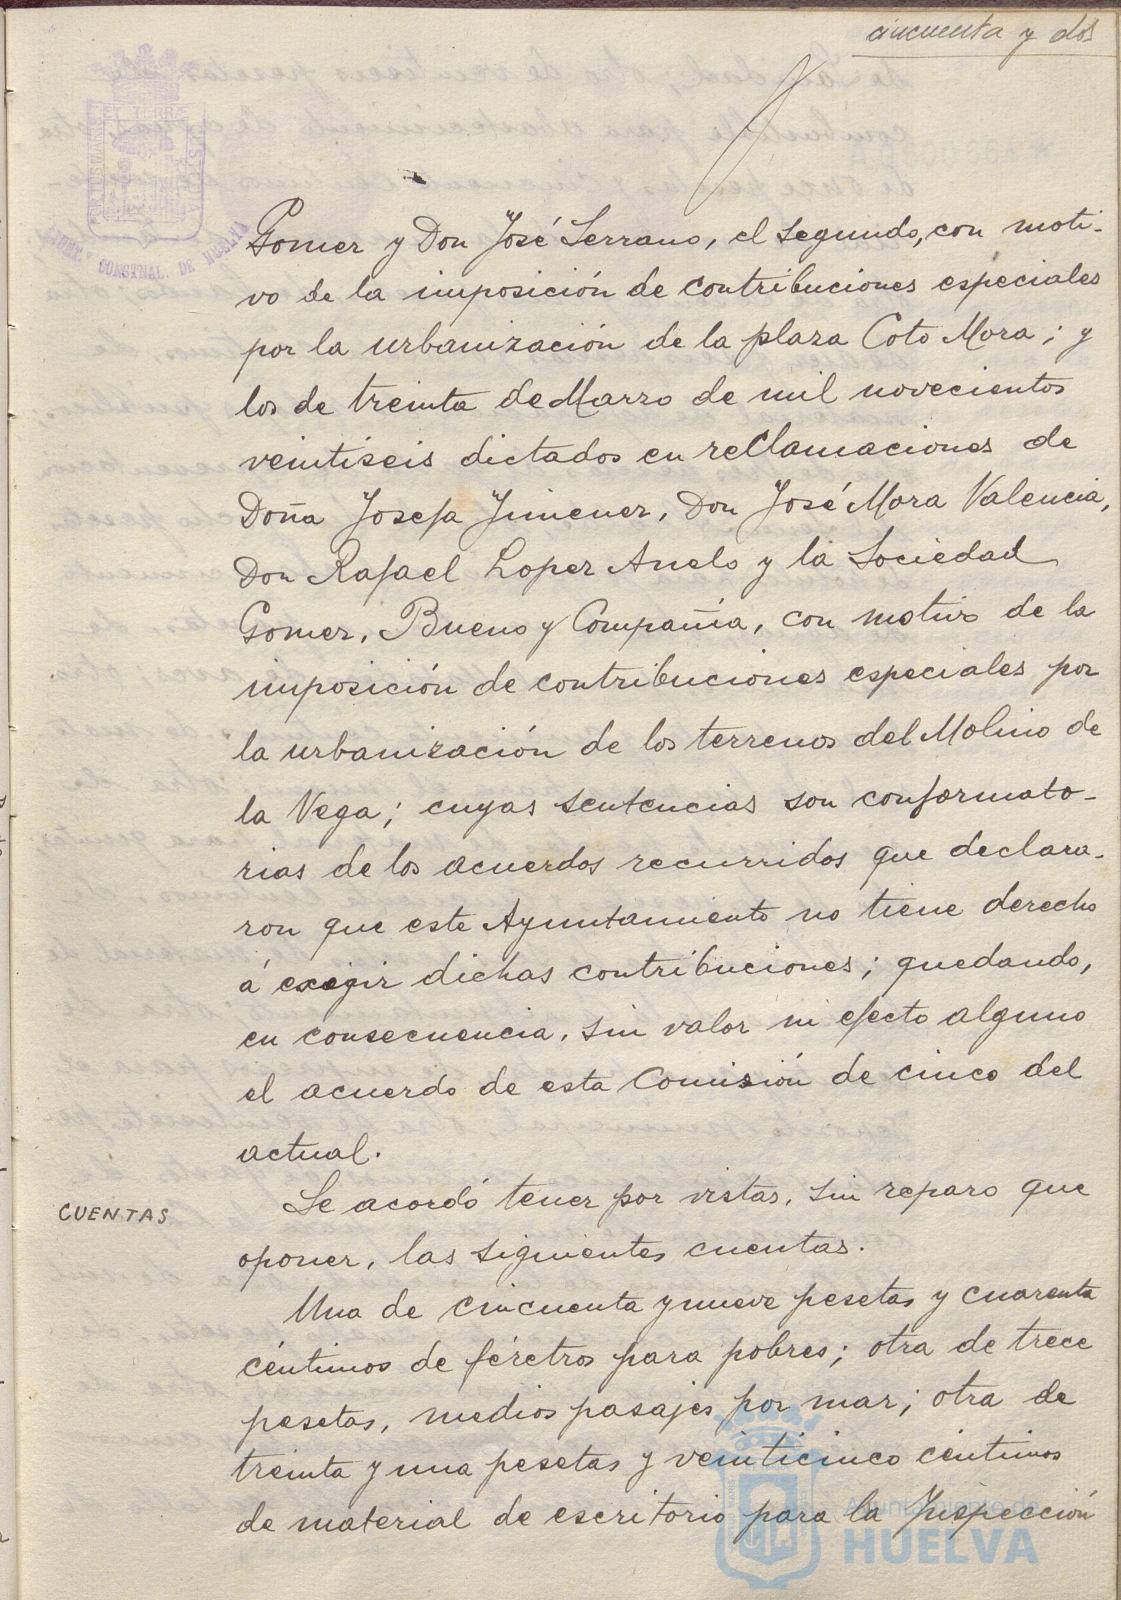 cincuenta y dos
Gomez y Don José Serrano, el segundo, con moti-
vo de la imposición de contribuciones especiales
por la urbanización de la plaza Coto Mora; y
los de treinta de Marzo de mil novecientos
veintiseis dictados en reclamaciones de
Doña Josefa Jimenez, Don José Mora Valencia,
Don Rafael Lopez Anelo y la Sociedad
Gomez, Bueno y Compañía, con motivo de la
imposición de contribuciones especiales por
la urbanización de los terrenos del Molino de
la Vega; cuyas sentencias son conformato-
rias de los acuerdos recurridos que declara-
ron que este Ayuntamiento no tiene derecho
á exigir dichas contribuciones; quedando,
en consecuencia, sin valor ni efecto alguno
el acuerdo de esta Comisión de cinco del
actual.
CUENTAS
Se acordó tener por vistas, sin reparo que
oponer, las siguientes cuentas.
Una de cincuenta y nueve pesetas y cuarenta
céntimos de féretros para pobres; otra de trece
pesetas, medios pasajes por mar; otra de
treinta y una pesetas y veinticinco céntimos
de material de escritorio para la Inspección
Ayuntamiento de
HUELVA